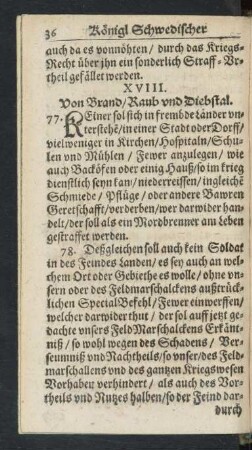 36 Königl Schwedischer
auch da es vonnöhten / durch das Kriegs-
Recht über jhn ein sonderlich Straff-Vr-
theil gefället werden.
XVIII.
Von Brand/ Raub vnd Diebstal.
77. KEiner sol sich in frembde Länder vn-
terstehē/in einer Stadt oder Dorff/
vielweniger in Kirchen/Hospitaln/Schu-
len vnd Mühlen / Fewer anzulegen / wie
auch Backöfen oder einig Hauß/so im krieg
dienstlich seyn kan/niederreissen/ingleichē
Schmiede/ Pflüge / oder andere Bawren
Geretschafft/verderben/wer darwider han-
delt/der soll als ein Mordbrenner am Leben
gestraffet werden.
78. Deßgleichen soll auch kein Soldat
in des Feindes Landen/es sey auch an wel-
chem Ort oder Gebiethe es wolle/ ohne vn-
sern oder des Feldmarschalckens außtrück-
lichen Special Befehl/ Fewer einwerffen/
welcher darwider thut / der sol auff jetzt ge-
dachte vnsers Feld Marschalckens Erkänt-
niß / so wohl wegen des Schadens / Ver-
seumniß vnd Nachtheils/so vnser/des Feld-
marschallens vnd des gantzen Kriegswesen
Vorhaben verhindert/ als auch des Vor-
theils vnd Nutzes halben/so der Feind dar-
durch